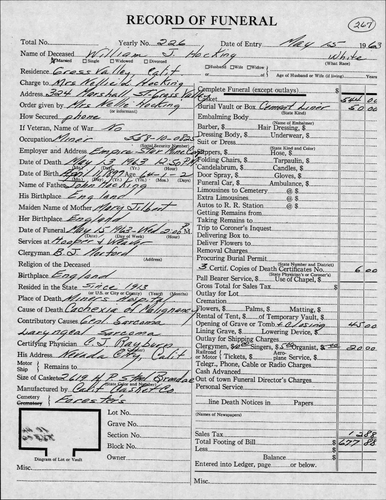 RECORD OF FUNERAL
267
Total No. Yearly No. 226 Date of Entry May 15 1963
Name of Deceased William J Hocking White
Married Single Widowed Divorced Husband Wife Widow (What Race)
Residence Grass Valley, Calif or Age of Husband or Wife (if living) Years
Charge to Mrs Nallie Hocking Complete Funeral (except outlays)
Address 324 Marshall St Grass Valley Casket 544 00
Order given by Mrs Nalle Hocking Burial Vault or Box Cement Liner 50 00
How Secured phone Embalming Body
If Veteran, Name of War No Barber, Hair Dressing,
Occupation Miner 558-10-0825 Dressing Body, Underwear,
Employer and Address Empire Star Mine Co Suit or Dress
Slippers, Hose,
Date of Death May 13 1963 12:50 PM Folding Chairs, Tarpaulin,
Candelabrum, Candles,
Date of Birth April 11 1897 Age 66-1-2 Door Spray, Gloves,
Name of Father John Hocking Funeral Car, Ambulance
His Birthplace England Limousines to Cemetery @
Extra Limousines @
Maiden Name of Mother Mary Jilbert Autos to R. R. Station @
Her Birthplace England Getting Remains from
Date of Funeral May 15 1963 Wed 2:00 PM Taking Remains to
Services at Hooper & Weaver Trip to Coroner's Inquest
Delivering Box to
Clergyman B. J. Morford Deliver Flowers to
Religion of the Deceased Removal Charges
Procuring Burial Permit
Birthplace England 3 Certif. Copies of Death Certificates No. 6 00
Resided in the State Since 1913 Pall Bearer Service, Use of Chapel,
Place of Death Miners Hospital Gross Total for Sales Tax
Outlay for Lot
Cause of Death Cachexia of Malignancy Cremation
Flowers, Palms, Matting,
Contributory Cause Gen. Sarcoma Rental of Tent, of Temporary Vault,
Laryngeal Sarcoma Opening of Grave or Tomb & Closing 45 00
Lining Grave, Lowering Device,
Certifying Physician C. J. Rayburn Outlay for Shipping Charges
His Address Nevada City, Calif Clergymen, Singers, Organist, 20 00
Motor Ship Remains to Railroad or Motor Tickets, Aeroplane Service,
Telegr., Phone, Cable or Radio Charges
Cash Advanced
Size of Casket Out of town Funeral Director's Charges
Manufactured by Calif Casket Co Personal Service
Cemetery Crematory Foresters
Lot No. line Death Notices in Papers
Grave No. (Names of Newspapers)
Section No. Sales Tax 12 88
Block No. Total Footing of Bill 677 88
Less
Diagram of Lot or Vault Owner Balance
Entered into Ledger, page or below.
Misc. Misc.